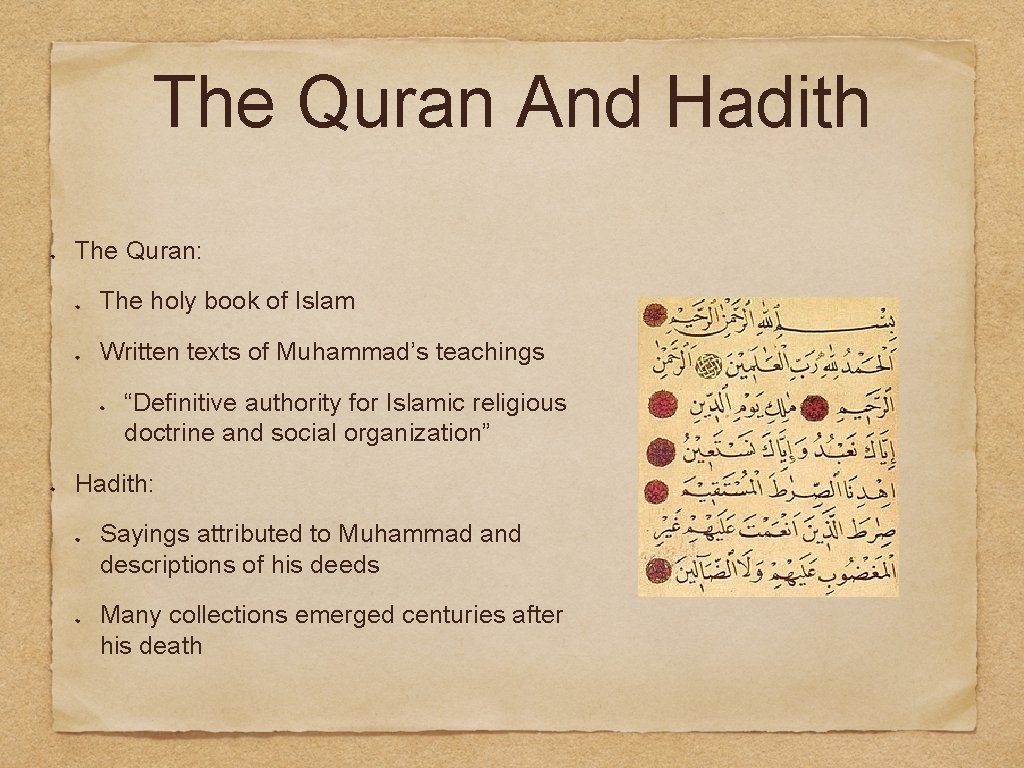 The Quran And Hadith
The Quran:
The holy book of Islam
Written texts of Muhammad’s teachings
“Definitive authority for Islamic religious
doctrine and social organization”
Hadith:
Sayings attributed to Muhammad and
descriptions of his deeds
Many collections emerged centuries after
his death
بِسْمِ اللهِ الرَّحْمٰنِ الرَّحِيْمِ
اَلْحَمْدُ لِلّٰهِ رَبِّ الْعَالَمِيْنَ الرَّحْمٰنِ
الرَّحِيْمِ مٰلِكِ يَوْمِ الدِّيْنِ
اِيَّاكَ نَعْبُدُ وَاِيَّاكَ نَسْتَعِيْنُ
اِهْدِنَا الصِّرَاطَ الْمُسْتَقِيْمَ
صِرَاطَ الَّذِيْنَ اَنْعَمْتَ عَلَيْهِمْ غَيْرِ
الْمَغْضُوْبِ عَلَيْهِمْ وَلَا الضَّالِّيْنَ